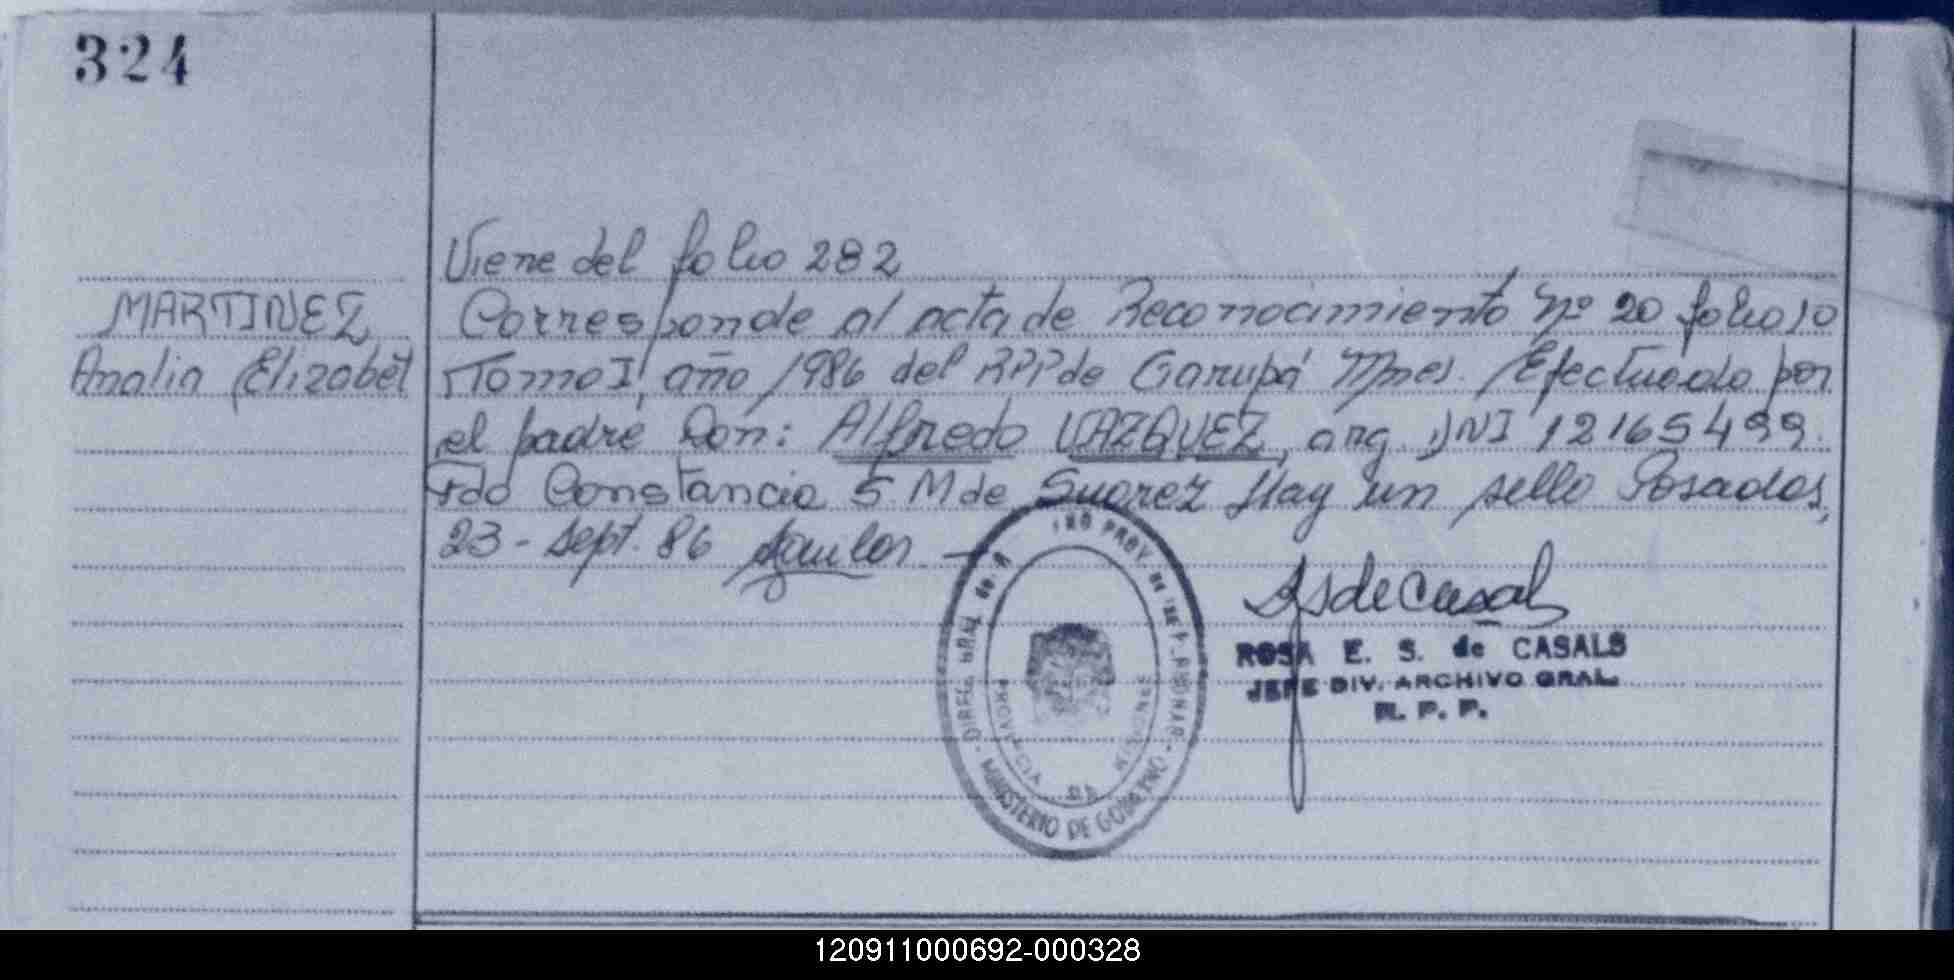 324
Viene del folio 282
MARTINEZ
Analia Elizabet
Corresponde al acta de Reconocimiento Nº 20 folio 10
Tomo I, año 1986 del RPP de Garupá Mnes. Efectuado por
el padre Don: Alfredo VAZQUEZ, arg. DNI 12165499.
Fdo Constancia S. M de Suarez Hay un sello Posadas,
23 - sept. 86
DE
MINISTERIO DE GOBIERNO
PROVINCIA DE MISIONES
ROSA E. S. de CASALS
JEFE DIV. ARCHIVO GRAL.
R. P. P.
120911000692-000328